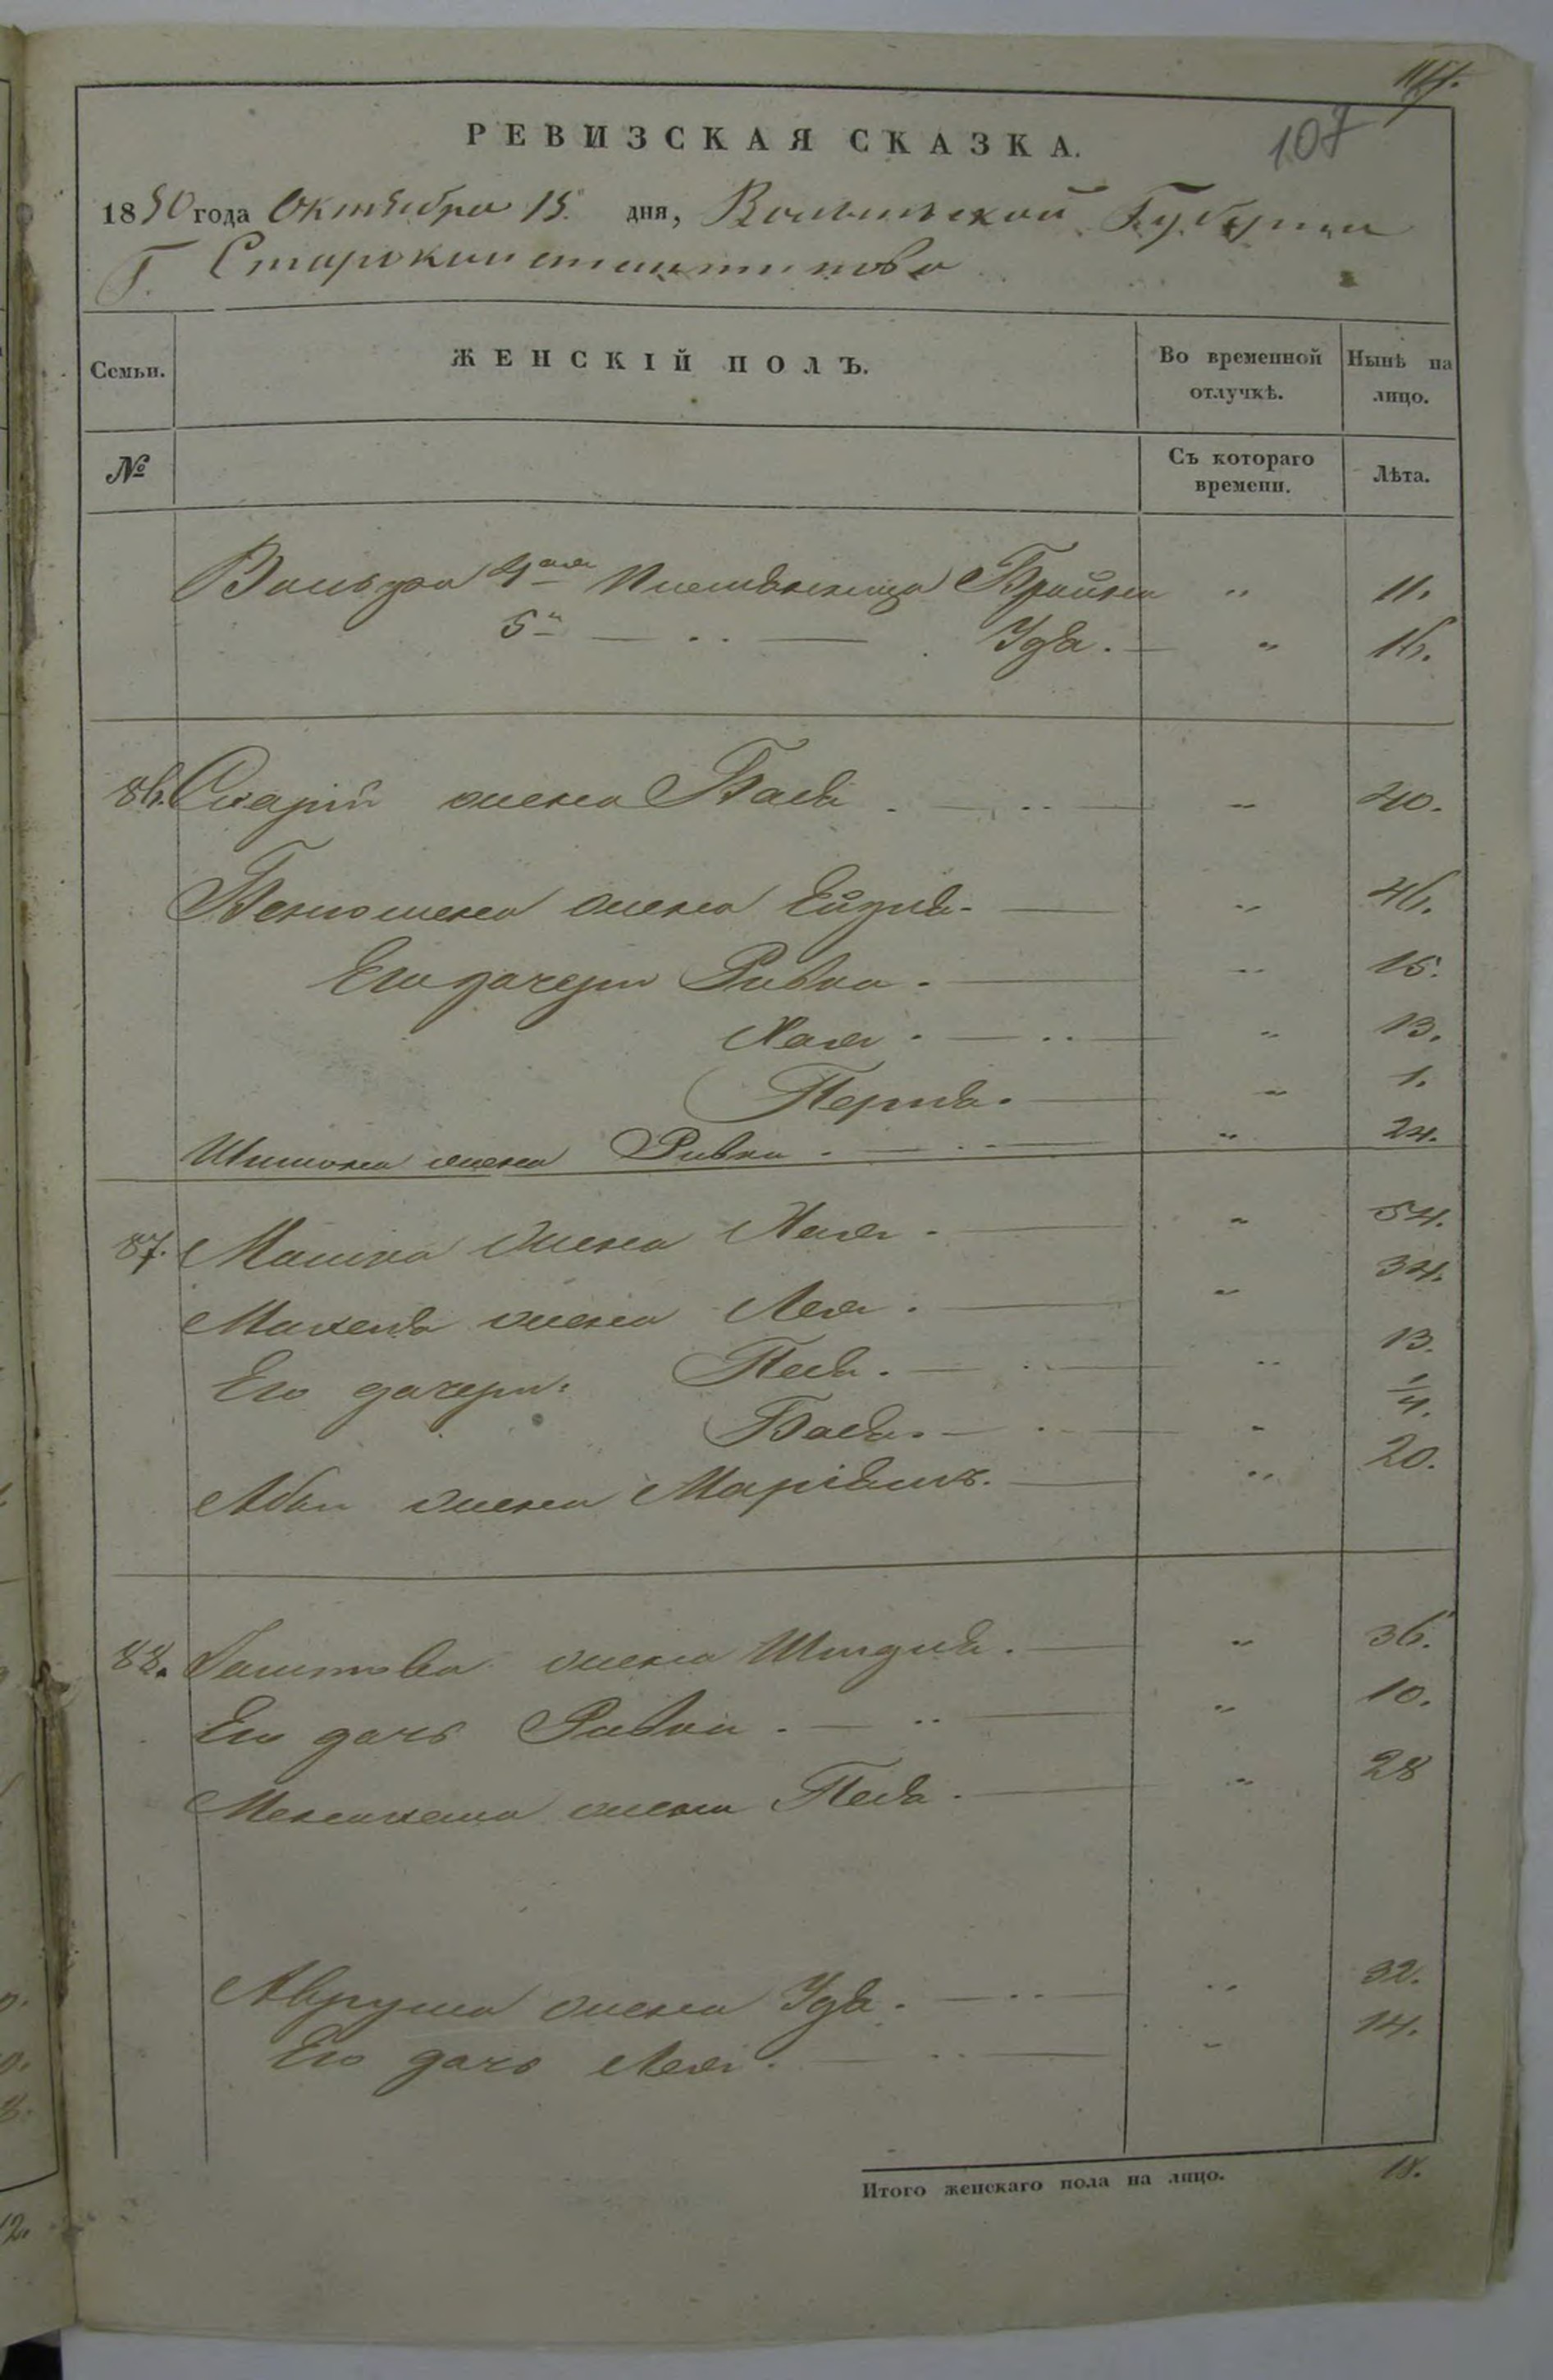 107
РЕВИЗСКАЯ СКАЗКА.
1850 года Октября 15. дня, Волынской Губернии
Г. Староконстантинова
Семьи.
ЖЕНСКІЙ ПОЛЪ.
Во временной отлучкѣ.
Нынѣ на лицо.
№
Съ котораго времени.
Лѣта.
4ая Племянница Брайна " 11.
5я — " — Удя. — " 16.
86. жена Бася . — " — " 40.
жена Ейдля. — " 46.
Его дочери Ривка . — " 15.
Хая . — " — " 13.
Перля. — " 1.
Шимона жена Ривка . — " — " 24.
87. Мошка жена Хая . — " 54.
жена Лея . — " 34.
Его дочери: Песя . — " — " 13.
Бася. — " — " 1/4.
Абы жена Маріямъ. — " 20.
88. жена Шейдля . — " 36.
Его дочь Ривка . — " — " 10.
жена Песя . — " 28
Аврума жена Удя . — " — " 32.
Его дочь Лея . — " — " 14.
Итого женскаго пола на лицо. 18.